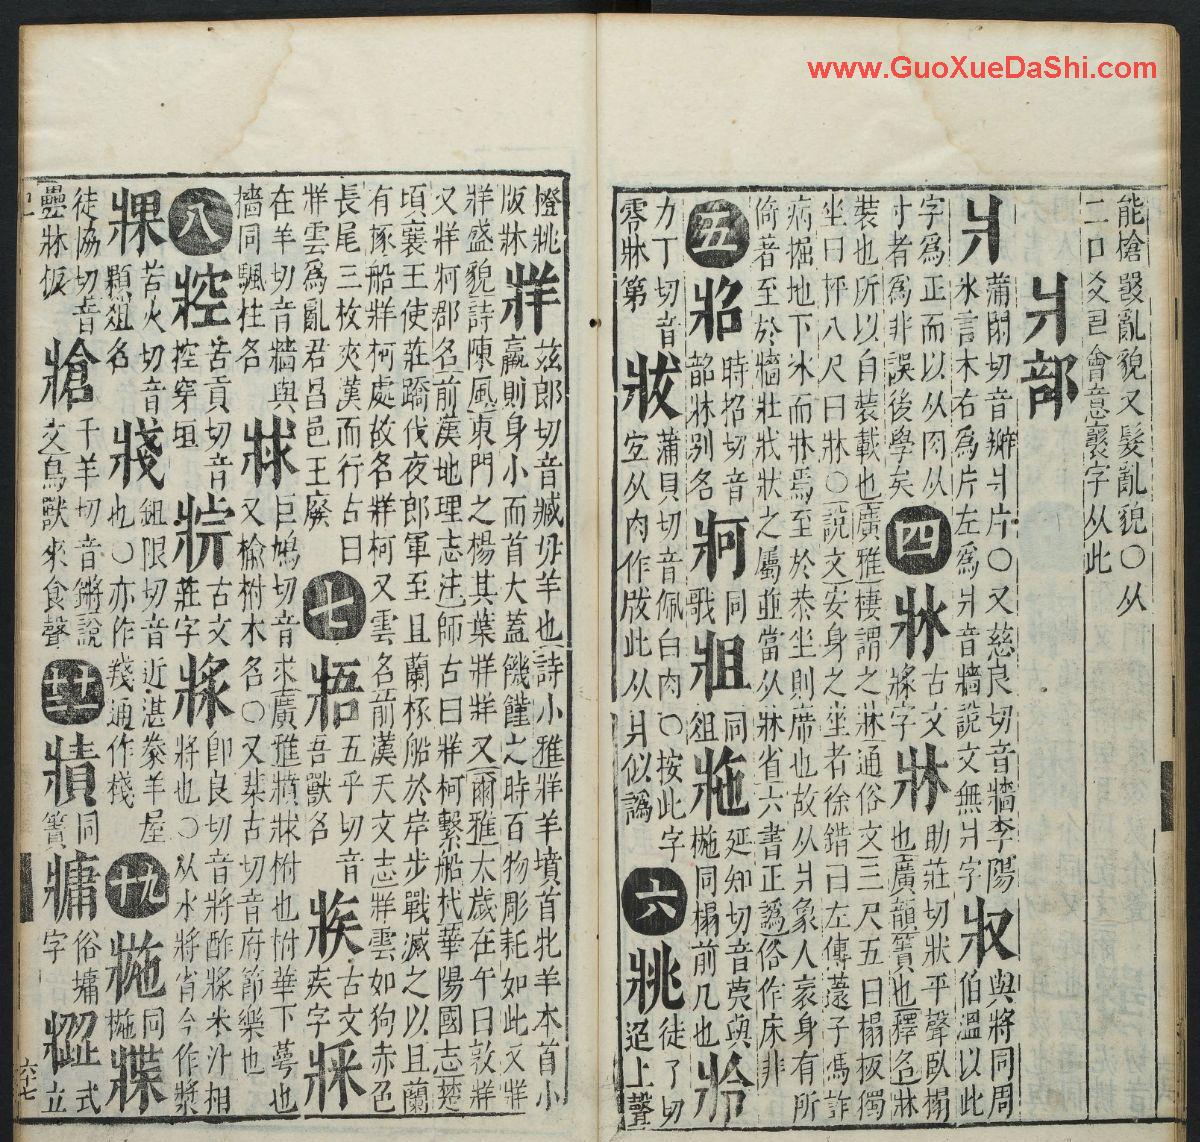 能槍亂貌又髮亂貌〇从
二口爻㠭會意襄字从此
爿部
爿
蒲閑切音瓣爿片〇又慈良切音牆李陽
氷言木右爲片左爲爿音牆說文無爿字
與將同周
伯溫以此
字爲正而以从肉从
寸者爲非誤後學矣
四
古文
字
牀
助莊切狀平聲臥榻
也廣韻簀也釋名牀
裝也所以自裝載也廣雅棲謂之牀通俗文三尺五曰榻板獨
坐曰枰八尺曰牀〇說文安身之坐者徐鍇曰左傳薳子馮詐
病掘地下氷而牀焉至於恭坐則席也故从爿象人衺身有所
倚者至於牆壯戕狀之屬並當从牀省六書正譌俗作床非
五
牊
時招切音
韶牀別名
牁
同
歌
同
俎
延知切音荑與
椸同榻前几也
力丁切音
零牀第
蒲貝切音佩白肉〇按此字
宜从肉作胈此从爿似譌
六
徒了切
迢上聲
橙
版牀
牂
兹郎切音臧牝羊也詩小雅牂羊墳首牝羊本首小
羸則身小而首大蓋饑饉之時百物彫耗如此又牂
牂盛貌詩陳風東門之楊其葉牂牂又爾雅太歲在午曰敦牂
又牂牁郡名前漢地理志注師古曰牂柯繫船杙華陽國志楚
頃襄王使莊蹻伐夜郎軍至且蘭椓船於岸步戰滅之以且蘭
有椓船牂柯處故名牂柯又雲名前漢天文志牂雲如狗赤色
長尾三枚夾漢而行占曰
牂雲爲亂君昌邑王廢
七
五乎切音
吾獸名
古文
疾字
在羊切音牆與
檣同颿柱名
巨鳩切音求廣雅柎也柎華下萼也
又楡柎木名〇又切音府節樂也
八
苦貢切音
控穿垣
古文
莊字
即良切音將酢漿米汁相
將也〇从水將省今作漿
苦火切音
顆俎名
鉏限切音近湛豢羊屋
也〇亦作通作棧
十九
椸
徒協切音
疊牀板
牄
千羊切音鏘說
文鳥獸來食聲
同
簀
俗墉
字
同
式
立
六七
www.GuoXueDaShi.com